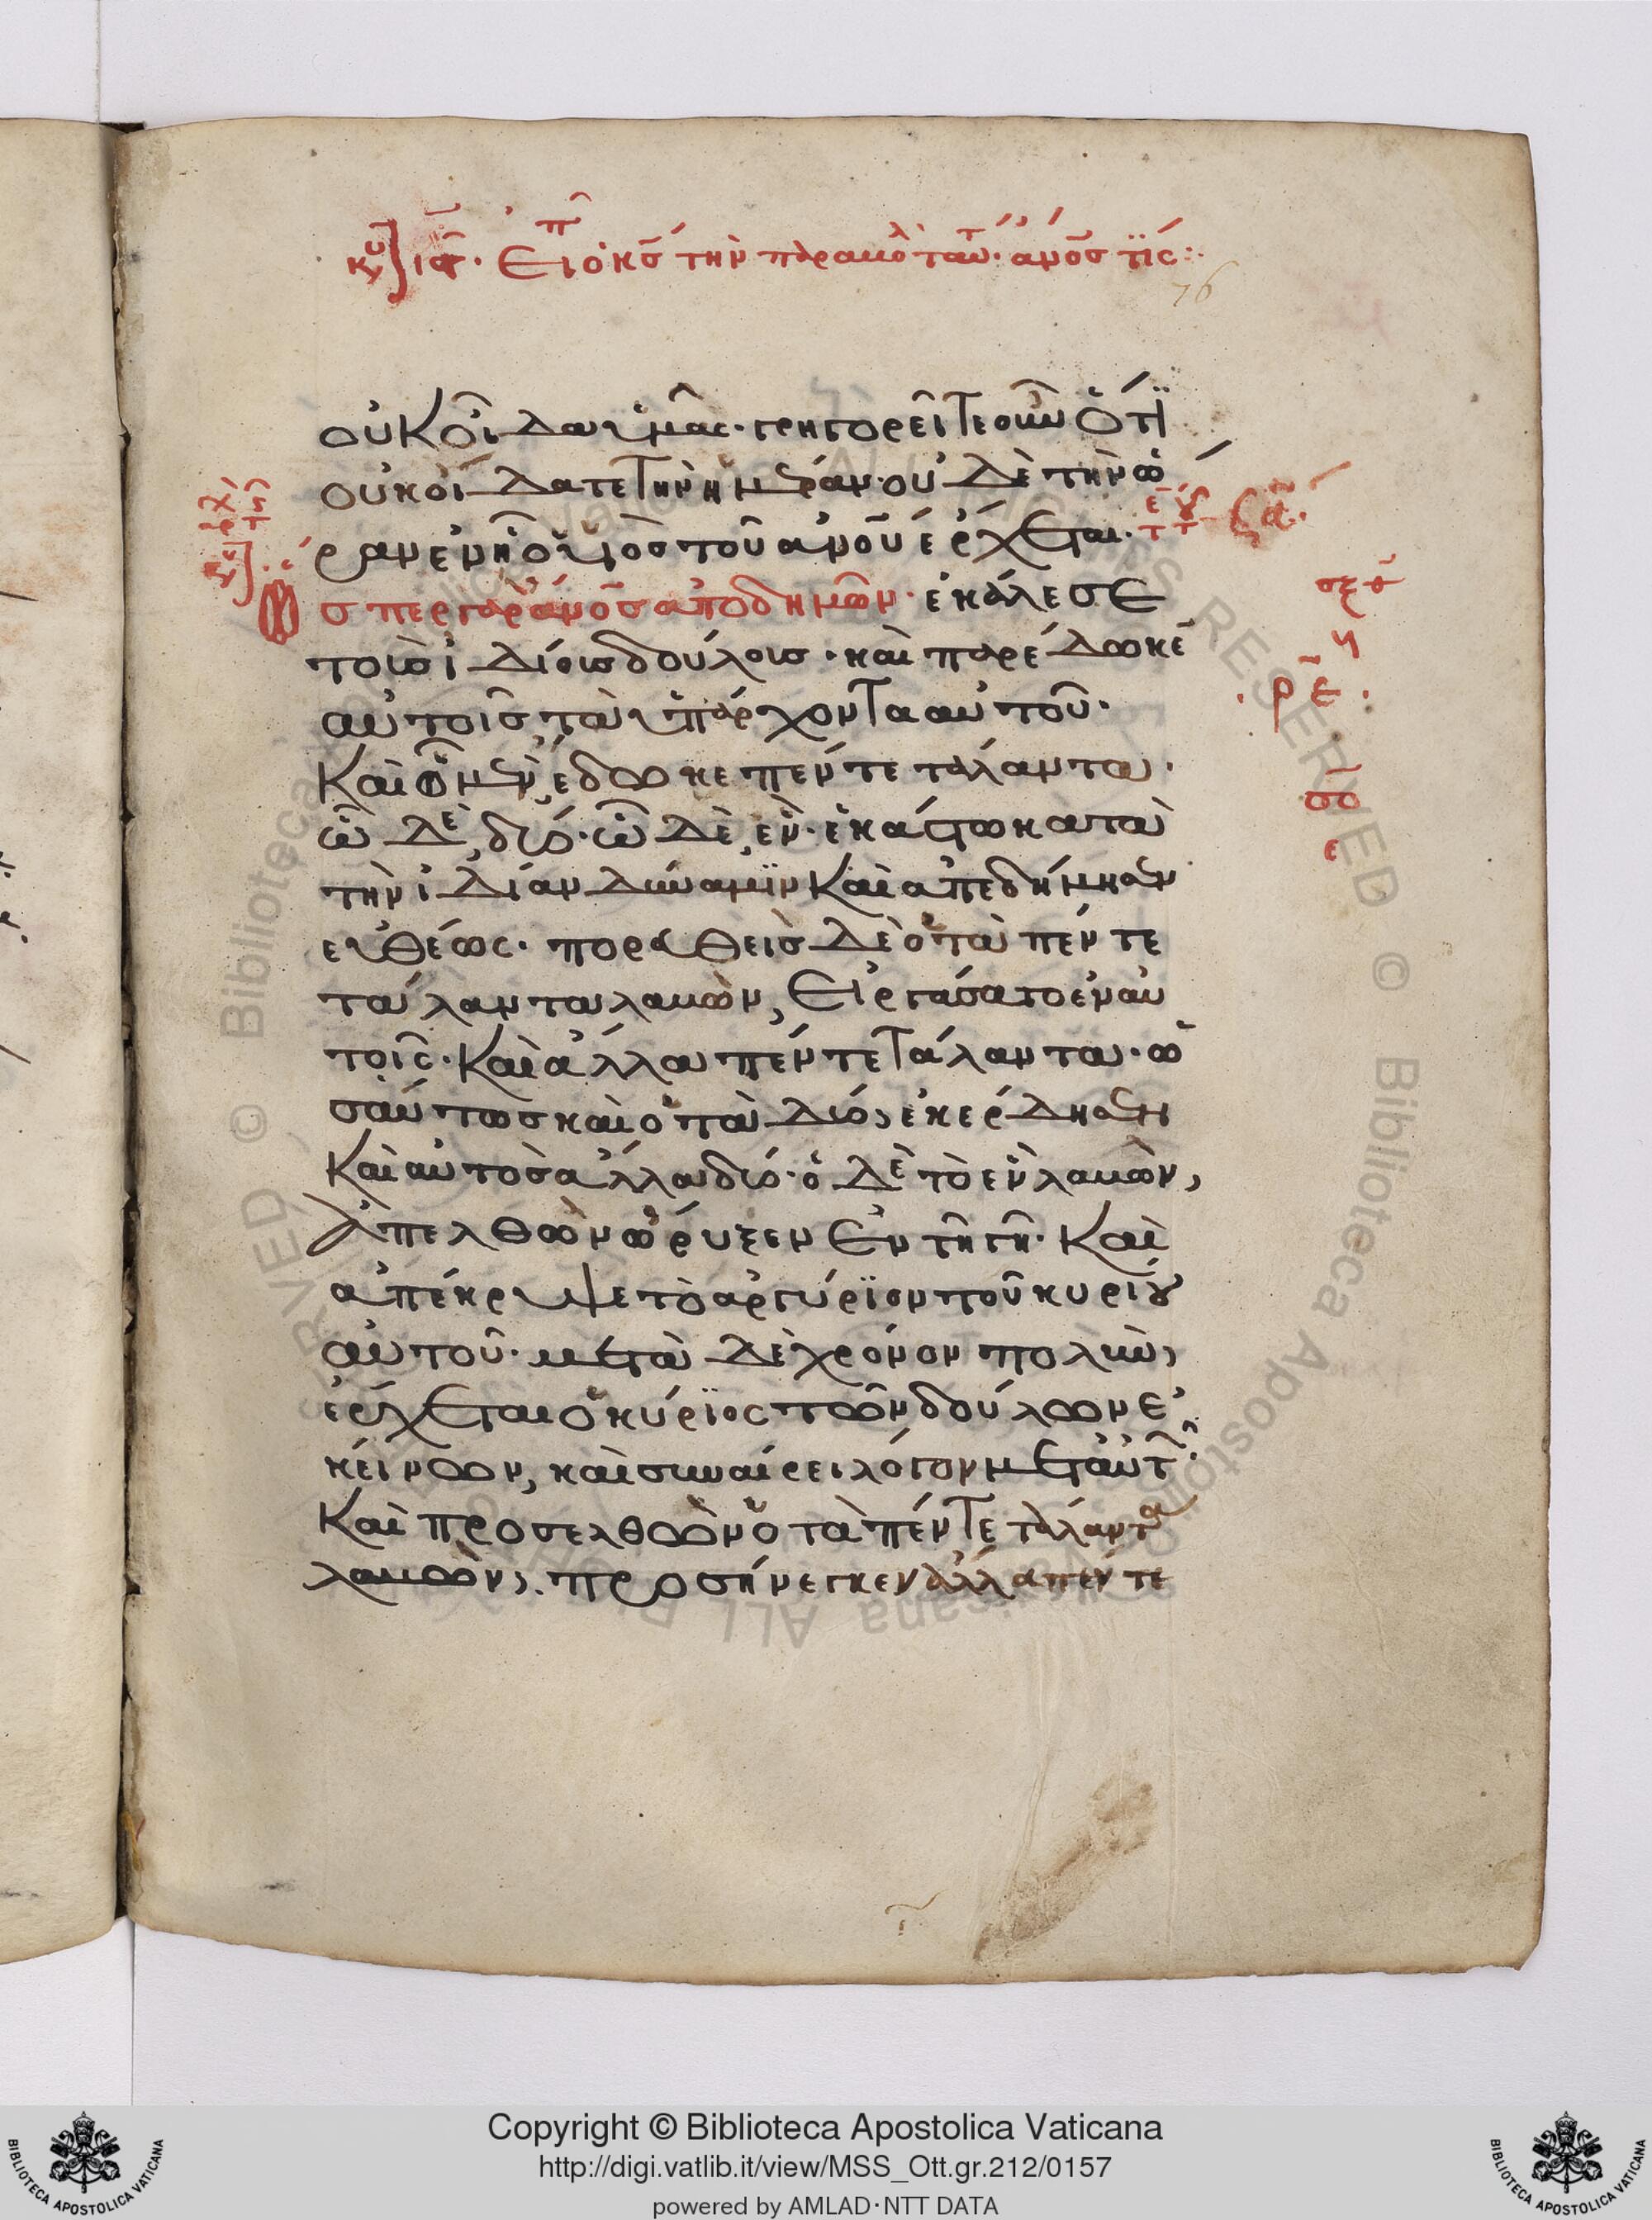 κυ ιϛ. Εἶπεν ὁ κς τὴν παραβολὴν ταύτην. ἄνος τίς:
76
οὐκ οἶδα ὑμᾶς· γρηγορεῖτε οὖν ὅτι
οὐκ οἴδατε τὴν ἡμέραν· οὐδὲ τὴν ὥ
ραν ἐν ἧ ὁ υἱὸς τοῦ ἀνου ἔρχεται·
σπερ γὰρ ἄνος ἀποδημῶν· ἐκάλεσε
τοὺς ἰδίους δούλους· καὶ παρέδωκεν
αὐτοῖς τὰ ὑπάρχοντα αὐτοῦ·
Καὶ ᾧ μὲν, ἔδωκε πέντε τάλαντα·
ᾧ δὲ, δύο· ᾧ δὲ, ἕν· ἑκάστω κατὰ
τὴν ἰδίαν δύναμιν Καὶ ἀπεδήμησεν
εὐθέως· πορευθεὶς δὲ ὁ τὰ πέντε
τάλαντα λαβὼν, Εἰργάσατο ἐν αὐ
τοῖς· Καὶ ἄλλα πέντε τάλαντα· ὡ
σαύτως καὶ ὁ τὰ δύο, ἐκέρδησεν
Καὶ αὐτὸς ἄλλα δύο· ὁ δὲ τὸ ἓν λαβὼν,
Ἀπελθὼν ὤρυξεν Ἐν τῆ γῆ· Καὶ
ἀπέκρυψε τὸ ἀργύριον τοῦ κυρίου
αὐτοῦ· μετὰ δὲ χρόνον πολὺν,
ἔρχεται ὁ κύριος τῶν δούλων ἐ
κείνων, καὶ συναίρει λόγον μετ' αὐτῶν·
Καὶ προσελθὼν ὁ τὰ πέντε τάλαντα
λαβὼν, προσήνεγκεν ἄλλα πέντε
ρε
σο
ε
Copyright © Biblioteca Apostolica Vaticana
http://digi.vatlib.it/view/MSS_Ott.gr.212/0157
powered by AMLAD·NTT DATA
BIBLIOTECA APOSTOLICA VATICANA
BIBLIOTECA APOSTOLICA VATICANA